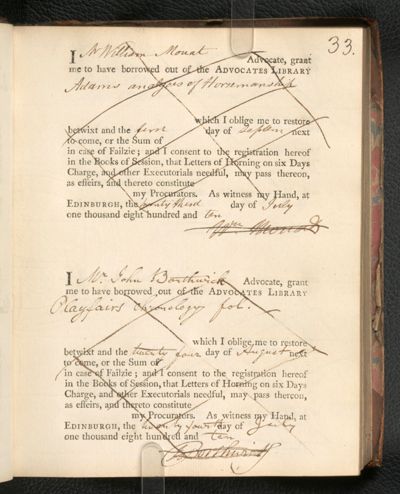 33.
I Mr William Mouat Advocate, grant
me to have borrowed out of the ADVOCATES LIBRARY
Adams analysis of Horsemanship
which I oblige me to restore
betwixt and the first day of Septem next
to come, or the Sum of
in case of Failzie; and I consent to the registration hereof
in the Books of Session, that Letters of Horning on six Days
Charge, and other Executorials needful, may pass thereon,
as effeirs, and thereto constitute
my Procurators. As witness my Hand, at
EDINBURGH, the twenty third day of July
one thousand eight hundred and ten
Wm Mouat
I Mr. John Borthwick Advocate, grant
me to have borrowed out of the ADVOCATES LIBRARY
Playfairs chronology fol.
which I oblige me to restore
betwixt and the twenty four day of August next
to come, or the Sum of
in case of Failzie; and I consent to the registration hereof
in the Books of Session, that Letters of Horning on six Days
Charge, and other Executorials needful, may pass thereon,
as effeirs, and thereto constitute
my Procurators. As witness my Hand, at
EDINBURGH, the twenty fourth day of July
one thousand eight hundred and ten
Borthwick